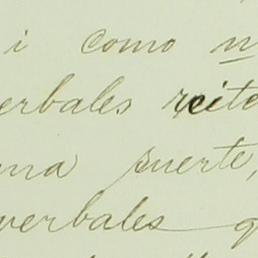 i como n
erbales reite
na suerte,
verbales q